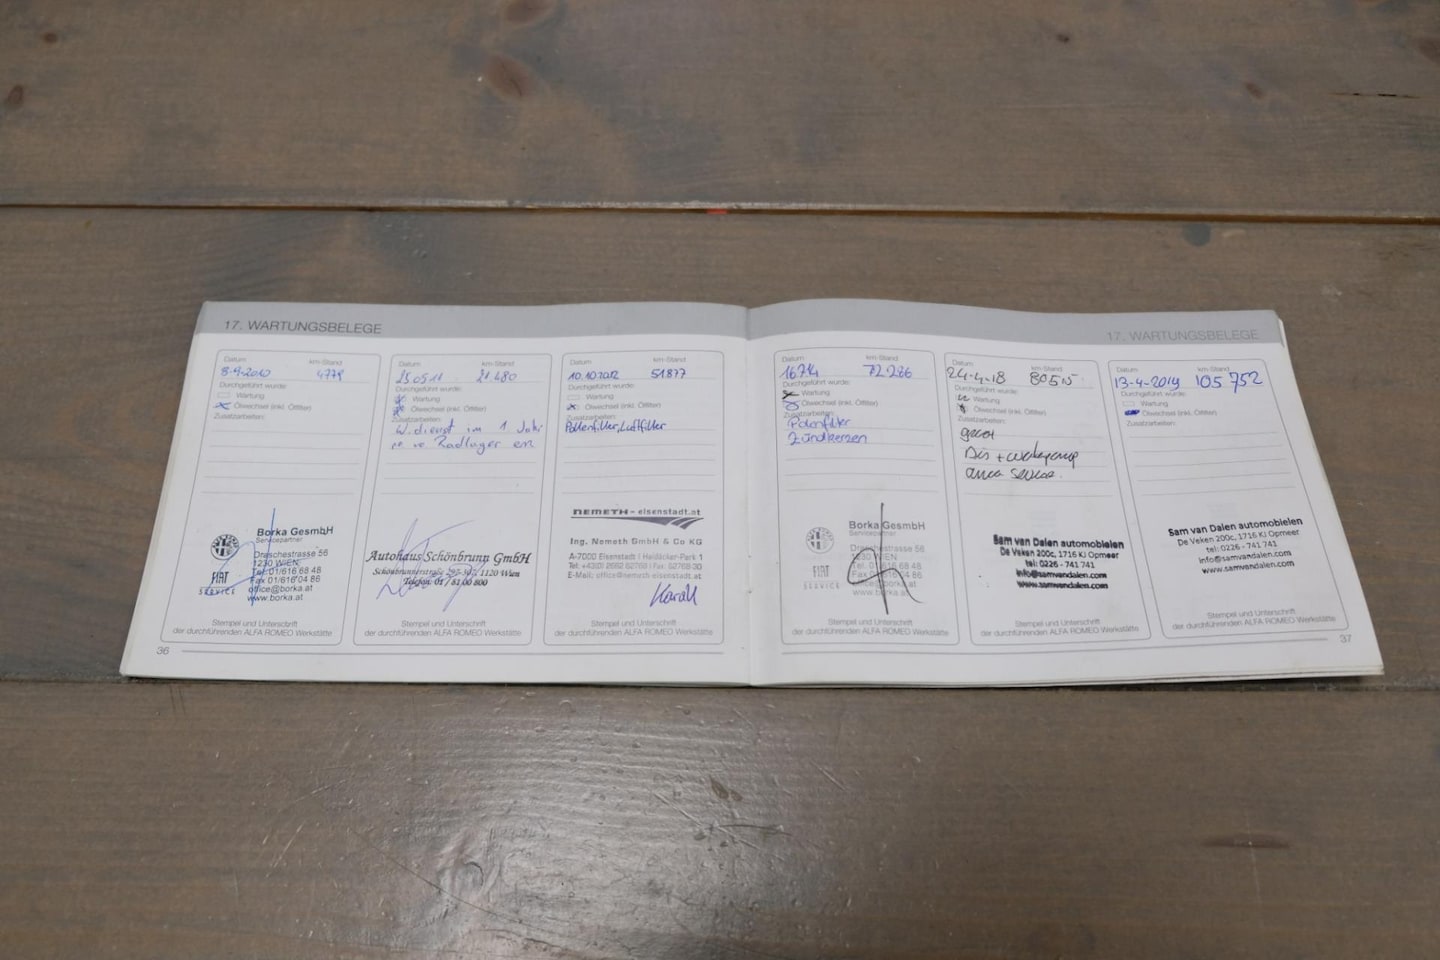 17. WARTUNGSBELEGE
Datum km-Stand
8-9-2010 4778
Durchgeführt wurde:
Wartung
Ölwechsel (inkl. Ölfilter)
Zusatzarbeiten:
Borka GesmbH
Servicepartner
Draschestrasse 56
1230 WIEN
Tel. 01/616 68 48
Fax 01/616 04 86
office@borka.at
www.borka.at
FIAT
SERVICE
Stempel und Unterschrift
der durchführenden ALFA ROMEO Werkstätte
36
Datum km-Stand
25 05 11 21 480
Durchgeführt wurde:
Wartung
Ölwechsel (inkl. Ölfilter)
Zusatzarbeiten:
W.dienst im 1 Jahr
Radlager
Autohaus Schönbrunn GmbH
Schönbrunnerstraße 1120 Wien
Telefon: 01 / 81 00 800
Stempel und Unterschrift
der durchführenden ALFA ROMEO Werkstätte
Datum km-Stand
10.10.2012 51877
Durchgeführt wurde:
Wartung
Ölwechsel (inkl. Ölfilter)
Zusatzarbeiten:
Pollenfilter, Luftfilter
NEMETH - eisenstadt.at
Ing. Nemeth GmbH & Co KG
A-7000 Eisenstadt I Haidäcker-Park 1
Tel: +43(0) 2682 62769 I Fax: 62769-30
E-Mail: office@nemeth-eisenstadt.at
Stempel und Unterschrift
der durchführenden ALFA ROMEO Werkstätte
17. WARTUNGSBELEGE
Datum km-Stand
16714 72 286
Durchgeführt wurde:
Wartung
Ölwechsel (inkl. Ölfilter)
Zusatzarbeiten:
Polenfilter
Zündkerzen
Borka GesmbH
Servicepartner
Draschestrasse 56
1230 WIEN
Tel. 01/616 68 48
Fax 01/616 04 86
office@borka.at
www.borka.at
FIAT
SERVICE
Stempel und Unterschrift
der durchführenden ALFA ROMEO Werkstätte
Datum km-Stand
24-4-18 80515
Durchgeführt wurde:
Wartung
Ölwechsel (inkl. Ölfilter)
Zusatzarbeiten:
groot
Dis + waterpomp
airco service.
Sam van Dalen automobielen
De Veken 200c, 1716 KJ Opmeer
tel: 0226 - 741 741
info@samvandalen.com
www.samvandalen.com
Stempel und Unterschrift
der durchführenden ALFA ROMEO Werkstätte
Datum km-Stand
13-4-2019 105 752
Durchgeführt wurde:
Wartung
Ölwechsel (inkl. Ölfilter)
Zusatzarbeiten:
Sam van Dalen automobielen
De Veken 200c, 1716 KJ Opmeer
tel: 0226 - 741 741
info@samvandalen.com
www.samvandalen.com
Stempel und Unterschrift
der durchführenden ALFA ROMEO Werkstätte
37